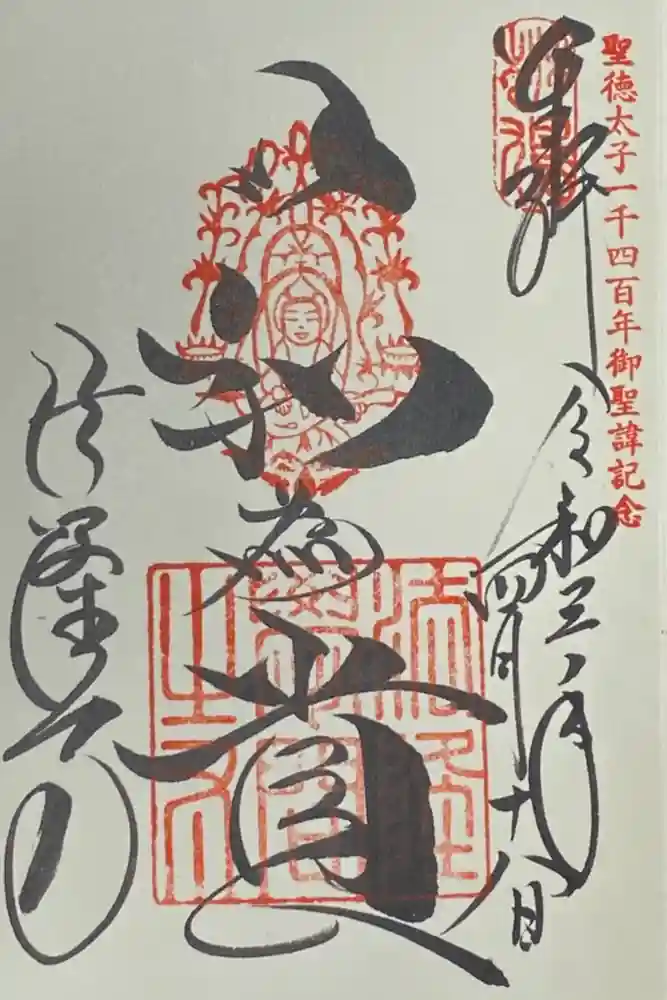 聖徳太子一千四百年御聖諱記念
奉拝
令和三年
四月十八日
以和為貴
法隆寺